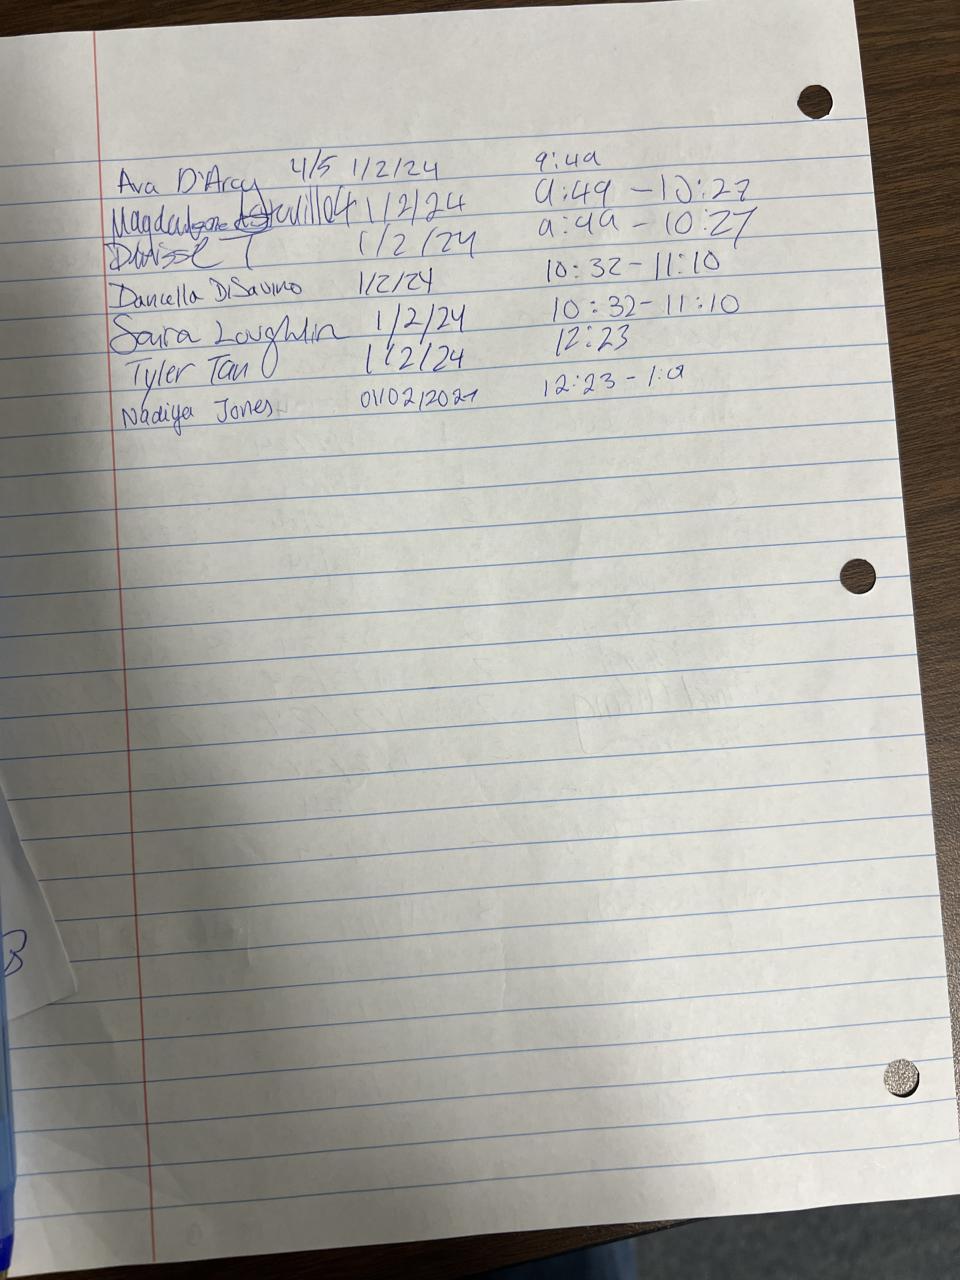 Ava D'Arcy 4/5 1/2/24 9:49
1/2/24 9:49 - 10:27
T 1/2/24 9:49 - 10:27
Dancella DiSavino 1/2/24 10:32 - 11:10
Saira Loughlin 1/2/24 10:32 - 11:10
Tyler Tan 1/2/24 12:23
Nadiya Jones 01/02/2024 12:23 - 1:01
B